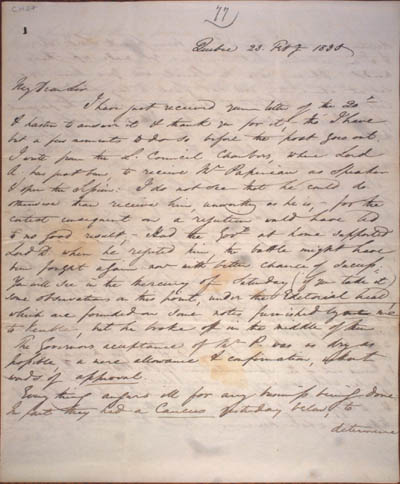 C H 27
77
1
Quebec 23. Feby 1835
My Dear Sir
I have just received your letter of the 20th
& hasten to answer it & thank you for it, tho' I have
but a few moments to do so before the post goes out.
I write from the L. Council Chambers, where Lord
A. has just been, to receive Mr Papineau as Speaker
& open the Session: I do not see that he could do
otherwise than receive him unworthy as he is, for the
contest consequent on a rejection would have led
to no good result, - Had the Govt at home supported
Lord D. when he rejected him, the battle might have
been fought again now with better chance of success.
You will see in the Mercury of Saturday (if you take it)
some observations on this point, under the Editorial head,
which are founded on some notes furnished by me
but he broke off in the middle of them
The Governors acceptance of Mr P. was as dry as
possible, a mere allowance & confirmation, without
words of approval
Every thing augurs ill for any business being done.
In fact they had a Caucus yesterday below, to
determine